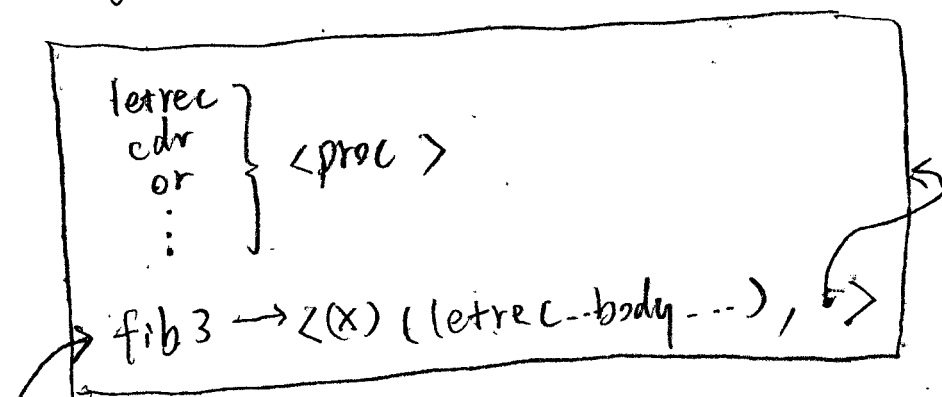 letrec
cdr
or
⋮
<proc>
fib3 → <(x) (letrec..body...), >